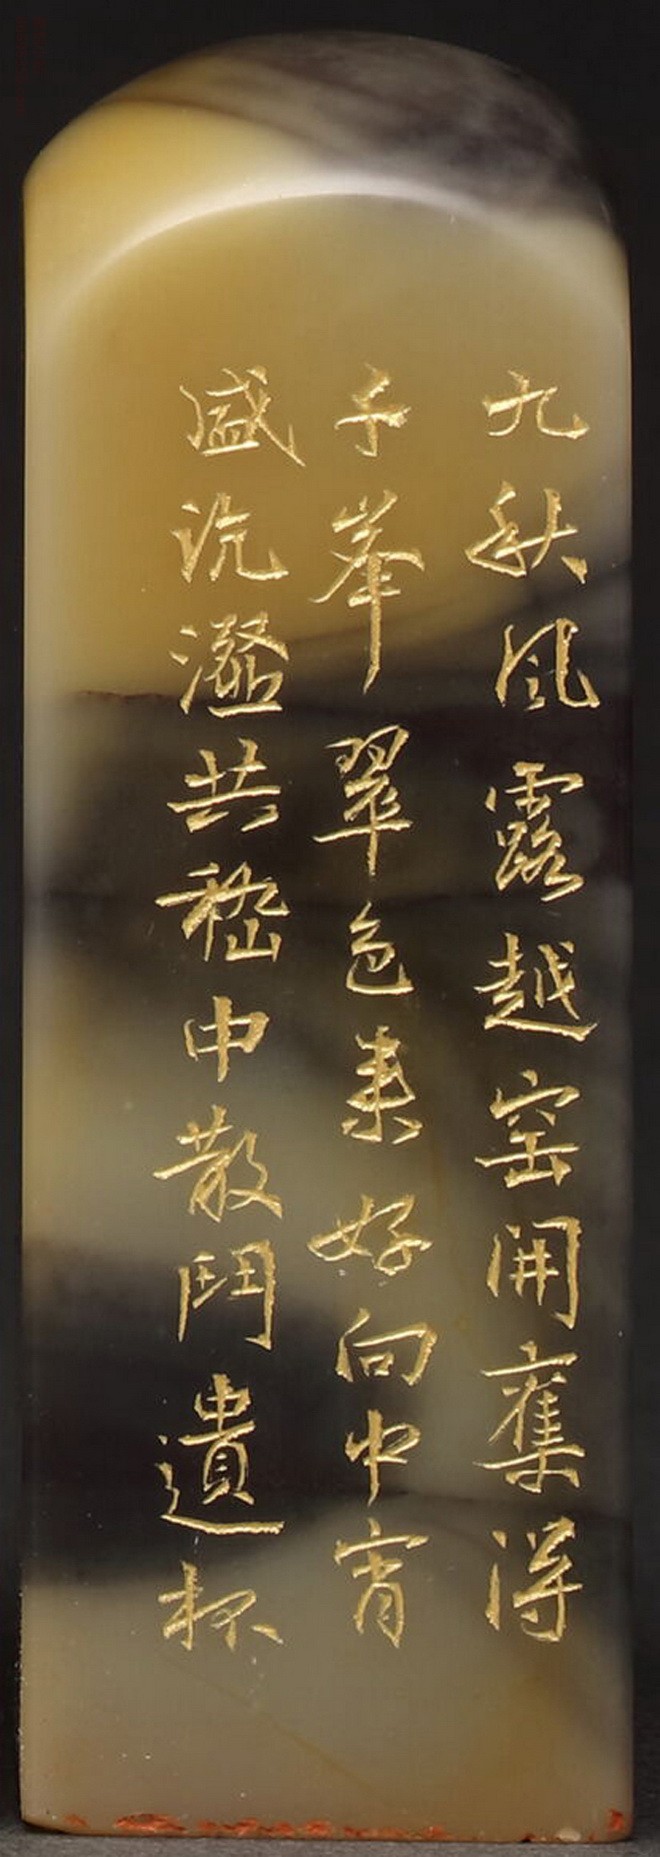 九秋风露越窑開奪得
千峯翠色来好向中宵
盛沆瀣共嵇中散鬥遺杯